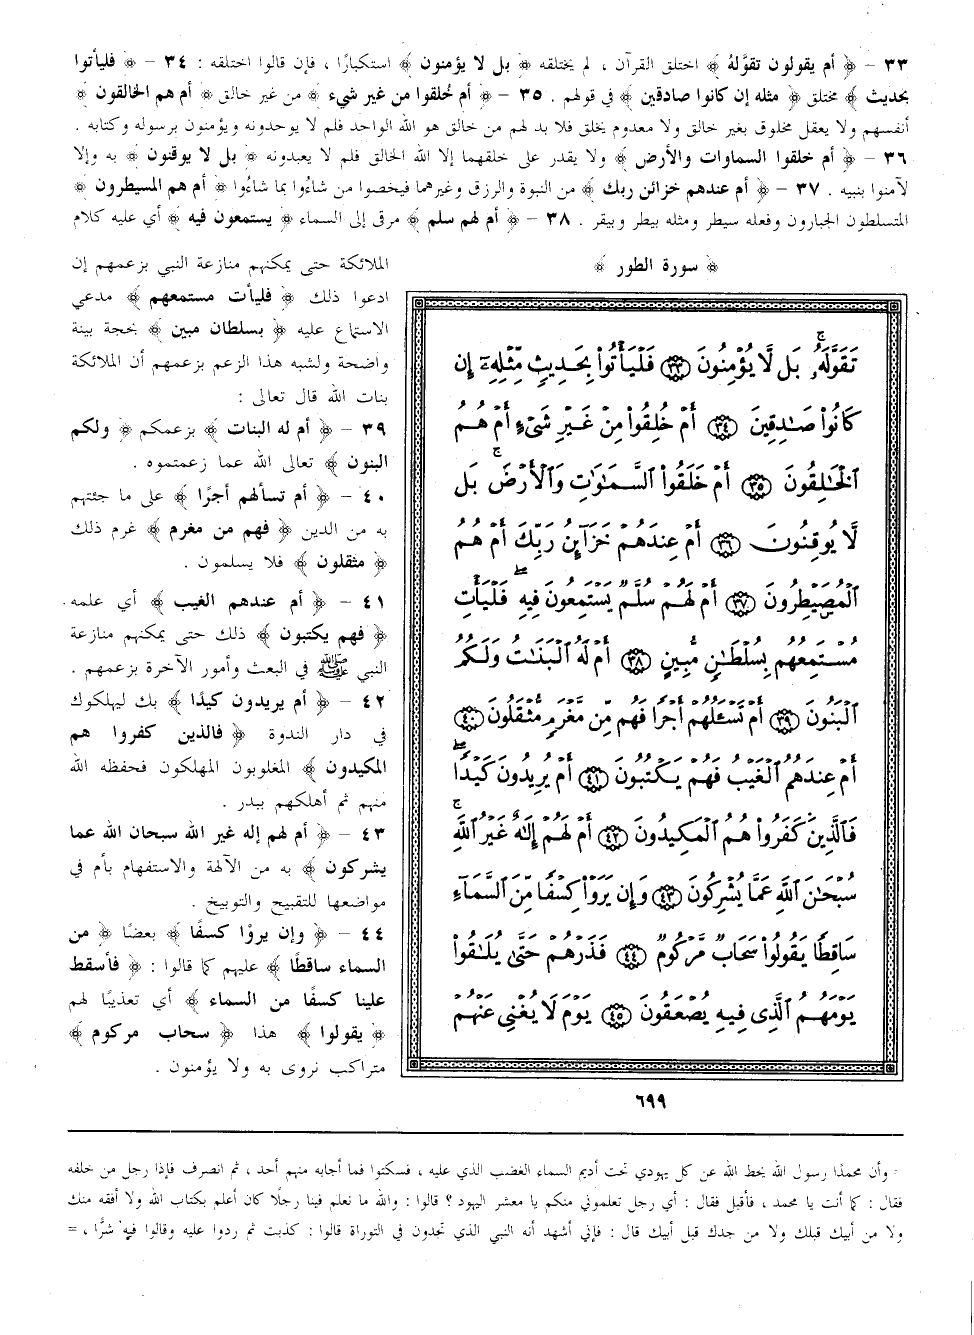 ٣٣ – ﴿ أم يقولون تقوَّلهُ ﴾ اختلق القرآن ، لم يختلقه ﴿ بل لا يؤمنون ﴾ استكبارًا ، فإن قالوا اختلقه : ٣٤ – ﴿ فليأتوا
بحديث ﴾ مختلق ﴿ مثله إن كانوا صادقين ﴾ في قولهم . ٣٥ – ﴿ أم خُلقوا من غير شيء ﴾ من غير خالق ﴿ أم هم الخالقون ﴾
أنفسهم ولا يعقل مخلوق بغير خالق ولا معدوم يخلق فلا بد لهم من خالق هو الله الواحد فلم لا يوحدونه ويؤمنون برسوله وكتابه .
٣٦ – ﴿ أم خلقوا السماوات والأرض ﴾ ولا يقدر على خلقهما إلا الله الخالق فلم لا يعبدونه ﴿ بل لا يوقنون ﴾ به وإلا
لآمنوا بنبيه . ٣٧ – ﴿ أم عندهم خزائن ربك ﴾ من النبوة والرزق وغيرهما فيخصوا من شاءُوا بما شاءُوا ﴿ أم هم المسيطرون ﴾
المتسلطون الجبارون وفعله سيطر ومثله بيطر وبيقر . ٣٨ – ﴿ أم لهم سلم ﴾ مرقى إلى السماء ﴿ يستمعون فيه ﴾ أي عليه كلام
﴿ سورة الطور ﴾
تَقَوَّلَهُۥ ۚ بَل لَّا يُؤْمِنُونَ ﴿٣٣﴾ فَلْيَأْتُوا۟ بِحَدِيثٍ مِّثْلِهِۦٓ إِن
كَانُوا۟ صَـٰدِقِينَ ﴿٣٤﴾ أَمْ خُلِقُوا۟ مِنْ غَيْرِ شَىْءٍ أَمْ هُمُ
ٱلْخَـٰلِقُونَ ﴿٣٥﴾ أَمْ خَلَقُوا۟ ٱلسَّمَـٰوَٰتِ وَٱلْأَرْضَ ۚ بَل
لَّا يُوقِنُونَ ﴿٣٦﴾ أَمْ عِندَهُمْ خَزَآئِنُ رَبِّكَ أَمْ هُمُ
ٱلْمُصَۜيْطِرُونَ ﴿٣٧﴾ أَمْ لَهُمْ سُلَّمٌ يَسْتَمِعُونَ فِيهِ ۖ فَلْيَأْتِ
مُسْتَمِعُهُم بِسُلْطَـٰنٍ مُّبِينٍ ﴿٣٨﴾ أَمْ لَهُ ٱلْبَنَـٰتُ وَلَكُمُ
ٱلْبَنُونَ ﴿٣٩﴾ أَمْ تَسْـَٔلُهُمْ أَجْرًا فَهُم مِّن مَّغْرَمٍ مُّثْقَلُونَ ﴿٤٠﴾
أَمْ عِندَهُمُ ٱلْغَيْبُ فَهُمْ يَكْتُبُونَ ﴿٤١﴾ أَمْ يُرِيدُونَ كَيْدًا ۖ
فَٱلَّذِينَ كَفَرُوا۟ هُمُ ٱلْمَكِيدُونَ ﴿٤٢﴾ أَمْ لَهُمْ إِلَـٰهٌ غَيْرُ ٱللَّهِ ۚ
سُبْحَـٰنَ ٱللَّهِ عَمَّا يُشْرِكُونَ ﴿٤٣﴾ وَإِن يَرَوْا۟ كِسْفًا مِّنَ ٱلسَّمَآءِ
سَاقِطًا يَقُولُوا۟ سَحَابٌ مَّرْكُومٌ ﴿٤٤﴾ فَذَرْهُمْ حَتَّىٰ يُلَـٰقُوا۟
يَوْمَهُمُ ٱلَّذِى فِيهِ يُصْعَقُونَ ﴿٤٥﴾ يَوْمَ لَا يُغْنِى عَنْهُمْ
٦٩٩
الملائكة حتى يمكنهم منازعة النبي بزعمهم إن
ادعوا ذلك ﴿ فليأت مستمعهم ﴾ مدعي
الاستماع عليه ﴿ بسلطان مبين ﴾ بحجة بينة
واضحة ولشبه هذا الزعم بزعمهم أن الملائكة
بنات الله قال تعالى :
٣٩ – ﴿ أم له البنات ﴾ بزعمكم ﴿ ولكم
البنون ﴾ تعالى الله عما زعمتموه .
٤٠ – ﴿ أم تسألهم أجرًا ﴾ على ما جئتهم
به من الدين ﴿ فهم من مغرم ﴾ غرم ذلك
﴿ مثقلون ﴾ فلا يسلمون .
٤١ – ﴿ أم عندهم الغيب ﴾ أي علمه
﴿ فهم يكتبون ﴾ ذلك حتى يمكنهم منازعة
النبي ﷺ في البعث وأمور الآخرة بزعمهم .
٤٢ – ﴿ أم يريدون كيدًا ﴾ بك ليهلكوك
في دار الندوة ﴿ فالذين كفروا هم
المكيدون ﴾ المغلوبون المهلكون فحفظه الله
منهم ثم أهلكهم ببدر .
٤٣ – ﴿ أم لهم إله غير الله سبحان الله عما
يشركون ﴾ به من الآلهة والاستفهام بأم في
مواضعها للتقبيح والتوبيخ .
٤٤ – ﴿ وإن يروْا كسفًا ﴾ بعضًا ﴿ من
السماء ساقطًا ﴾ عليهم كما قالوا : ﴿ فأسقط
علينا كسفًا من السماء ﴾ أي تعذيبًا لهم
﴿ يقولوا ﴾ هذا ﴿ سحاب مركوم ﴾
متراكب نروى به ولا يؤمنون .
= وأن محمدًا رسول الله يحط الله عن كل يهودي تحت أديم السماء الغضب الذي عليه ، فسكتوا فما أجابه منهم أحد ، ثم انصرف فإذا رجل من خلفه
فقال : كما أنت يا محمد ، فأقبل فقال : أي رجل تعلموني منكم يا معشر اليهود ؟ قالوا : والله ما نعلم فينا رجلًا كان أعلم بكتاب الله ولا أفقه منك
ولا من أبيك قبلك ولا من جدك قبل أبيك قال : فإني أشهد أنه النبي الذي تجدون في التوراة قالوا : كذبت ثم ردوا عليه وقالوا فيه شرًّا ، =